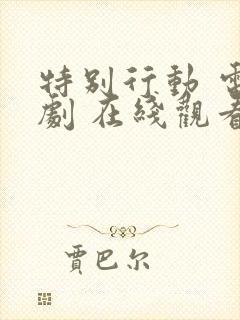 特别行動 電
劇 在綫觀看
賈巴尔